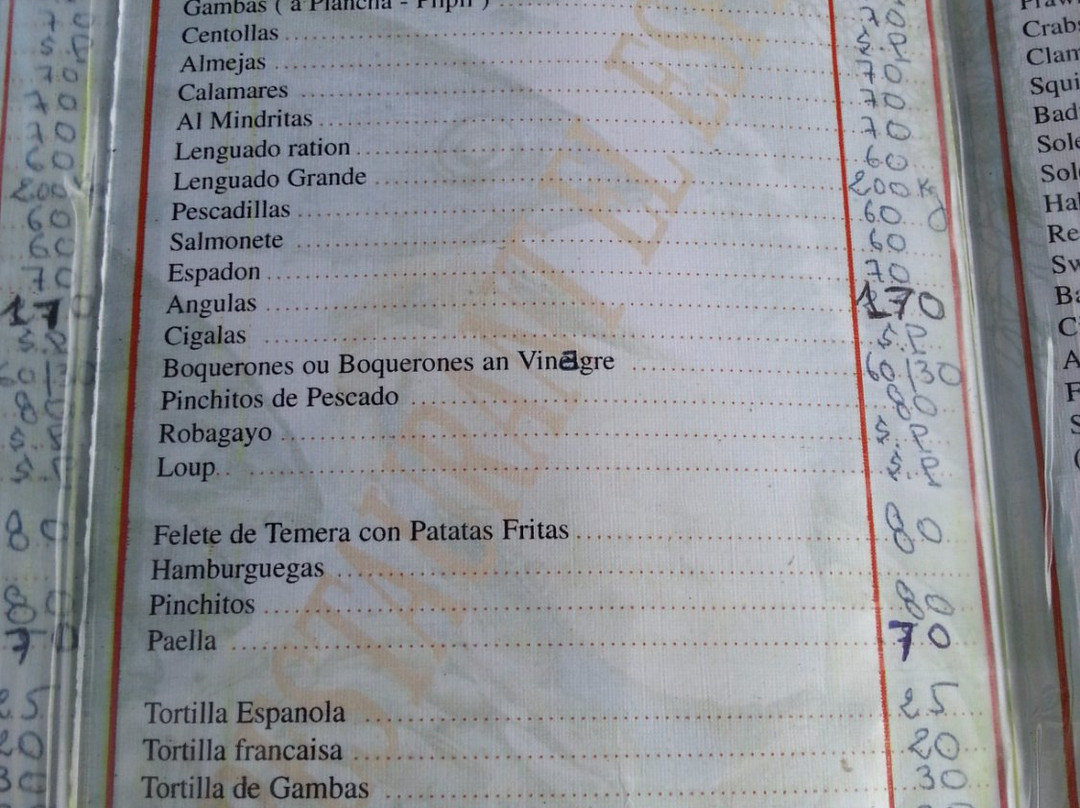 Gambas ( a Plancha - Pilpil ) 70
Centollas S.P
Almejas 70
Calamares 70
Al Mindritas 70
Lenguado ration 60
Lenguado Grande 200 Kg
Pescadillas 60
Salmonete 60
Espadon 70
Angulas 170
Cigalas S.P
Boquerones ou Boquerones an Vinagre 60 130
Pinchitos de Pescado 80
Robagayo S.P
Loup S.P
Felete de Temera con Patatas Fritas 80
Hamburguegas
Pinchitos 80
Paella 70
Tortilla Espanola 25
Tortilla francaisa 20
Tortilla de Gambas 30
Crab
Clam
Squi
Bad
Sole
Sol
Hal
Re
Sw
Ba
C
A
F
S